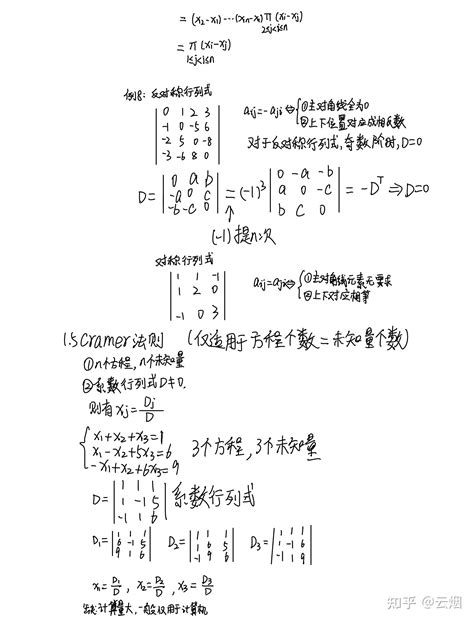 = (x₂-x₁)···(xₙ-x₁) π (xᵢ-xⱼ)
2≤j<i≤n
= π (xᵢ-xⱼ)
1≤j<i≤n
例8: 反对称行列式
| 0 1 2 3 |
| -1 0 -5 6 |
| -2 5 0 -8 |
| -3 -6 8 0 |
aᵢⱼ=-aⱼᵢ ⇔ { ①主对角线全为0
②上下位置对应成相反数
对于反对称行列式,奇数阶时,D=0
D= | 0 a b |
| -a 0 c |
| -b -c 0 |
= (-1)³ | 0 -a -b |
| a 0 -c |
| b c 0 |
= -Dᵀ ⇒ D=0
(-1)提n次
对称行列式
| 1 1 -1 |
| 1 2 0 |
| -1 0 3 |
aᵢⱼ=aⱼᵢ ⇔ { ①主对角线元素无要求
②上下对应相等
1.5 Cramer法则 (仅适用于方程个数=未知量个数)
①n个方程, n个未知量
②系数行列式D≠0.
则有 xⱼ= Dⱼ/D
{ x₁+x₂+x₃=1
x₁-x₂+5x₃=6
-x₁+x₂+6x₃=9
3个方程, 3个未知量
D= | 1 1 1 |
| 1 -1 5 |
| -1 1 6 |
系数行列式
D₁= | 1 1 1 |
| 6 -1 5 |
| 9 1 6 |
D₂= | 1 1 1 |
| 1 6 5 |
| -1 9 6 |
D₃= | 1 1 1 |
| 1 -1 6 |
| -1 1 9 |
x₁= D₁/D , x₂= D₂/D , x₃= D₃/D
计算量大,一般仅用于计算机
知乎 @云烟